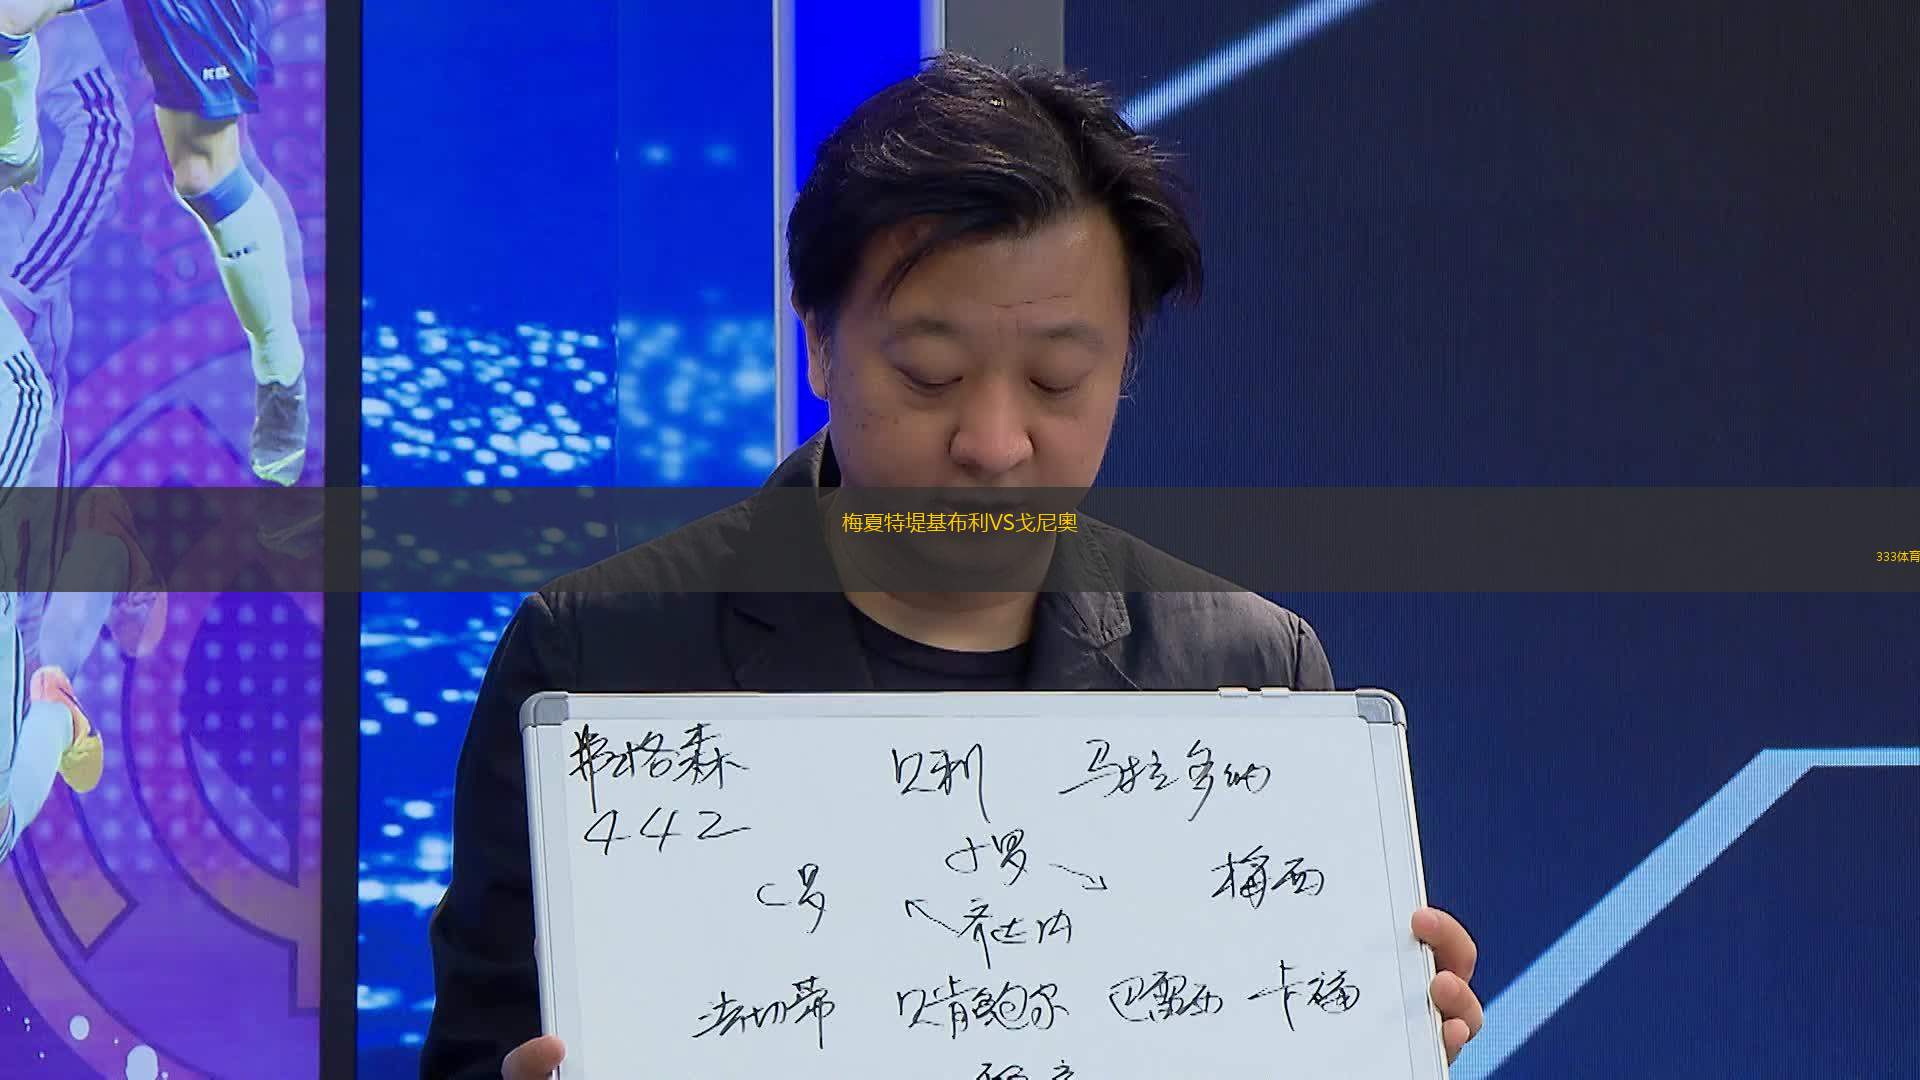 梅夏特堤基布利VS戈尼奥
333体育
弗格森 贝利 马拉多纳
442
小罗
C罗 梅西
齐达内
法切蒂 贝肯鲍尔 巴雷西 卡福